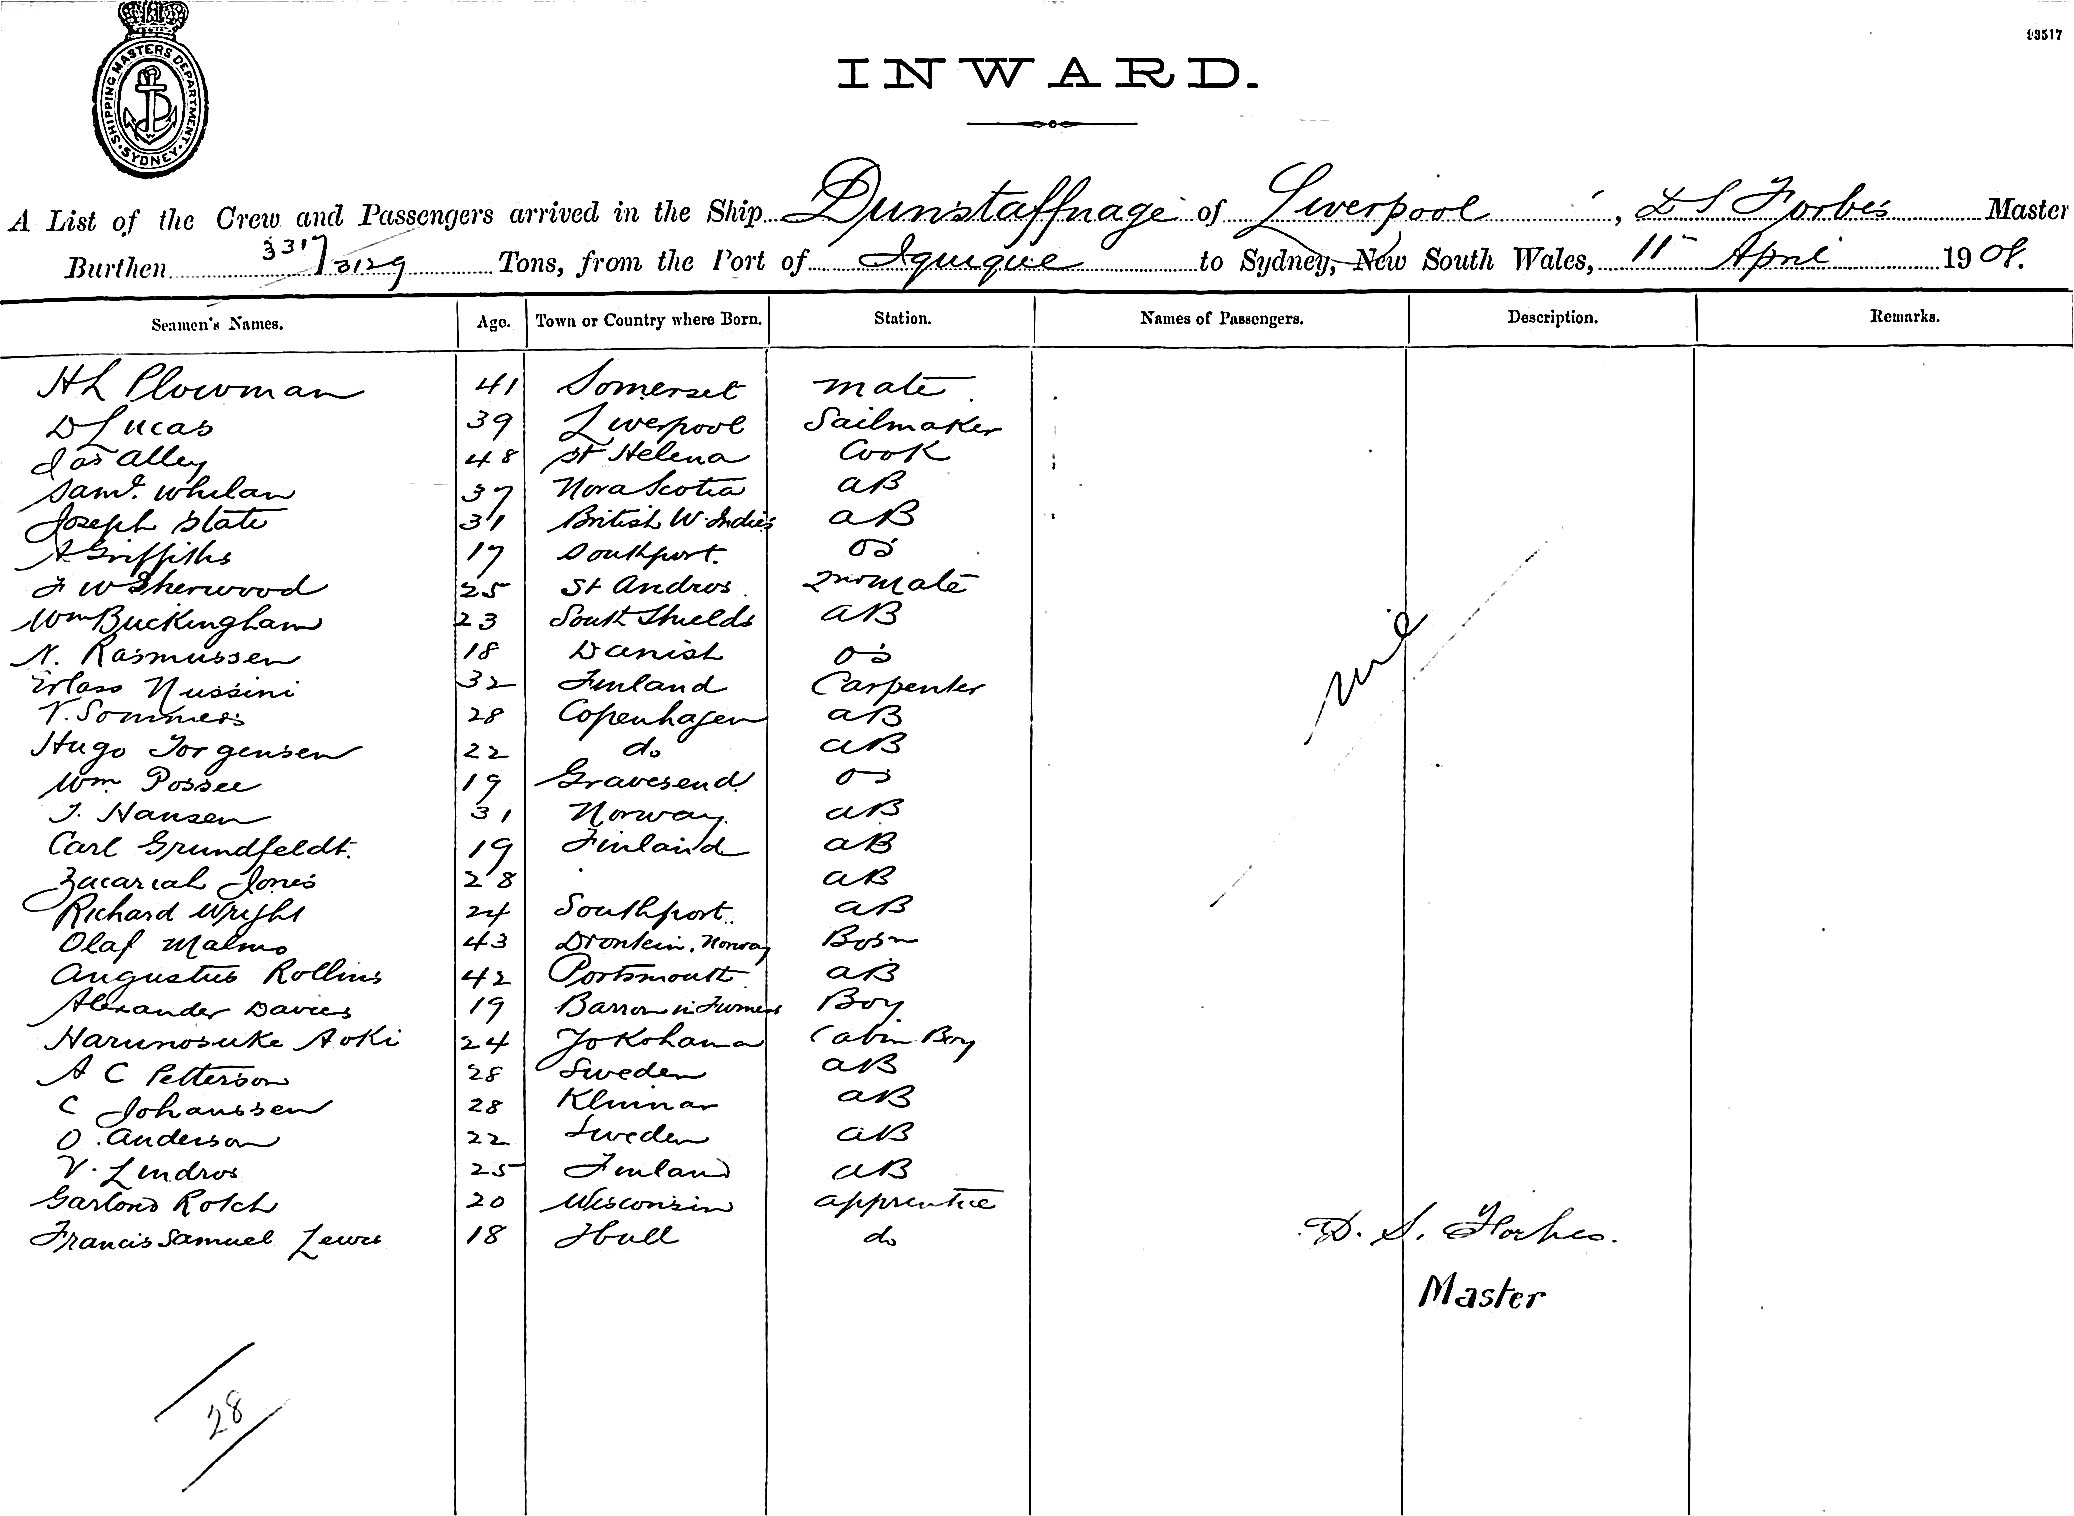 SHIPPING MASTERS DEPARTMENT. SYDNEY
93517
INWARD.
A List of the Crew and Passengers arrived in the Ship Dunstaffnage of Liverpool, D S Forbes Master
Burthen 3317/3129 Tons, from the Port of Iquique to Sydney, New South Wales, 11th April 1908.
Seamen's Names. Age. Town or Country where Born. Station. Names of Passengers. Description. Remarks.
H L Plowman 41 Somerset mate
D Lucas 39 Liverpool Sailmaker
Jas Alley 48 St Helena Cook
Saml. Whelan 37 Nova Scotia aB
Joseph State 31 British W. Indies aB
A Griffiths 17 Southport. os
F W Sherwood 25 St Andros 2nd mate
Wm Buckingham 23 South Shields aB
N. Rasmussen 18 Danish os
Nussini 32 Finland Carpenter
V. Sommers 28 Copenhagen aB
Hugo Jorgensen 22 do aB
Wm. Possee 19 Gravesend os
J. Hansen 31 Norway aB
Carl Grundfeldt. 19 Finland aB
Zacariah Jones 28 aB
Richard Wright 24 Southport aB
Olaf Malmo 43 Drontein, Norway Bosn
Augustus Rollins 42 Portsmouth aB
Alexander Davies 19 Barrow in Furness Boy
Harunosuke Aoki 24 Yokohama Cabin Boy
A C Petterson 28 Sweden aB
C Johanssen 28 aB
O. Anderson 22 Sweden aB
V. Lindros 25 Finland aB
Garlond Rotch 20 Wisconsin apprentice
Francis Samuel Lewis 18 Hull do
nil
D. S. Forbes.
Master
28